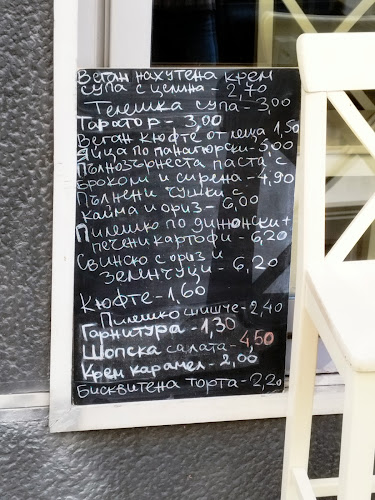 Веган нахутена крем
супа с целина - 2,70
Телешка супа - 3,00
Таратор - 3,00
Веган кюфте от леща 1,50
Яйца по панагюрски - 5,00
Пълнозърнеста паста
броколи и сирена - 4,90
Пълнени чушки с
кайма и ориз - 6,00
Пилешко по дижонски +
печени картофи - 6,20
Свинско с ориз и
зеленчуци - 6,20
Кюфте - 1,60
Пилешко шишче - 2,40
Гарнитура - 1,30
Шопска салата - 4,50
Крем карамел - 2,00
Бисквитена торта - 2,20